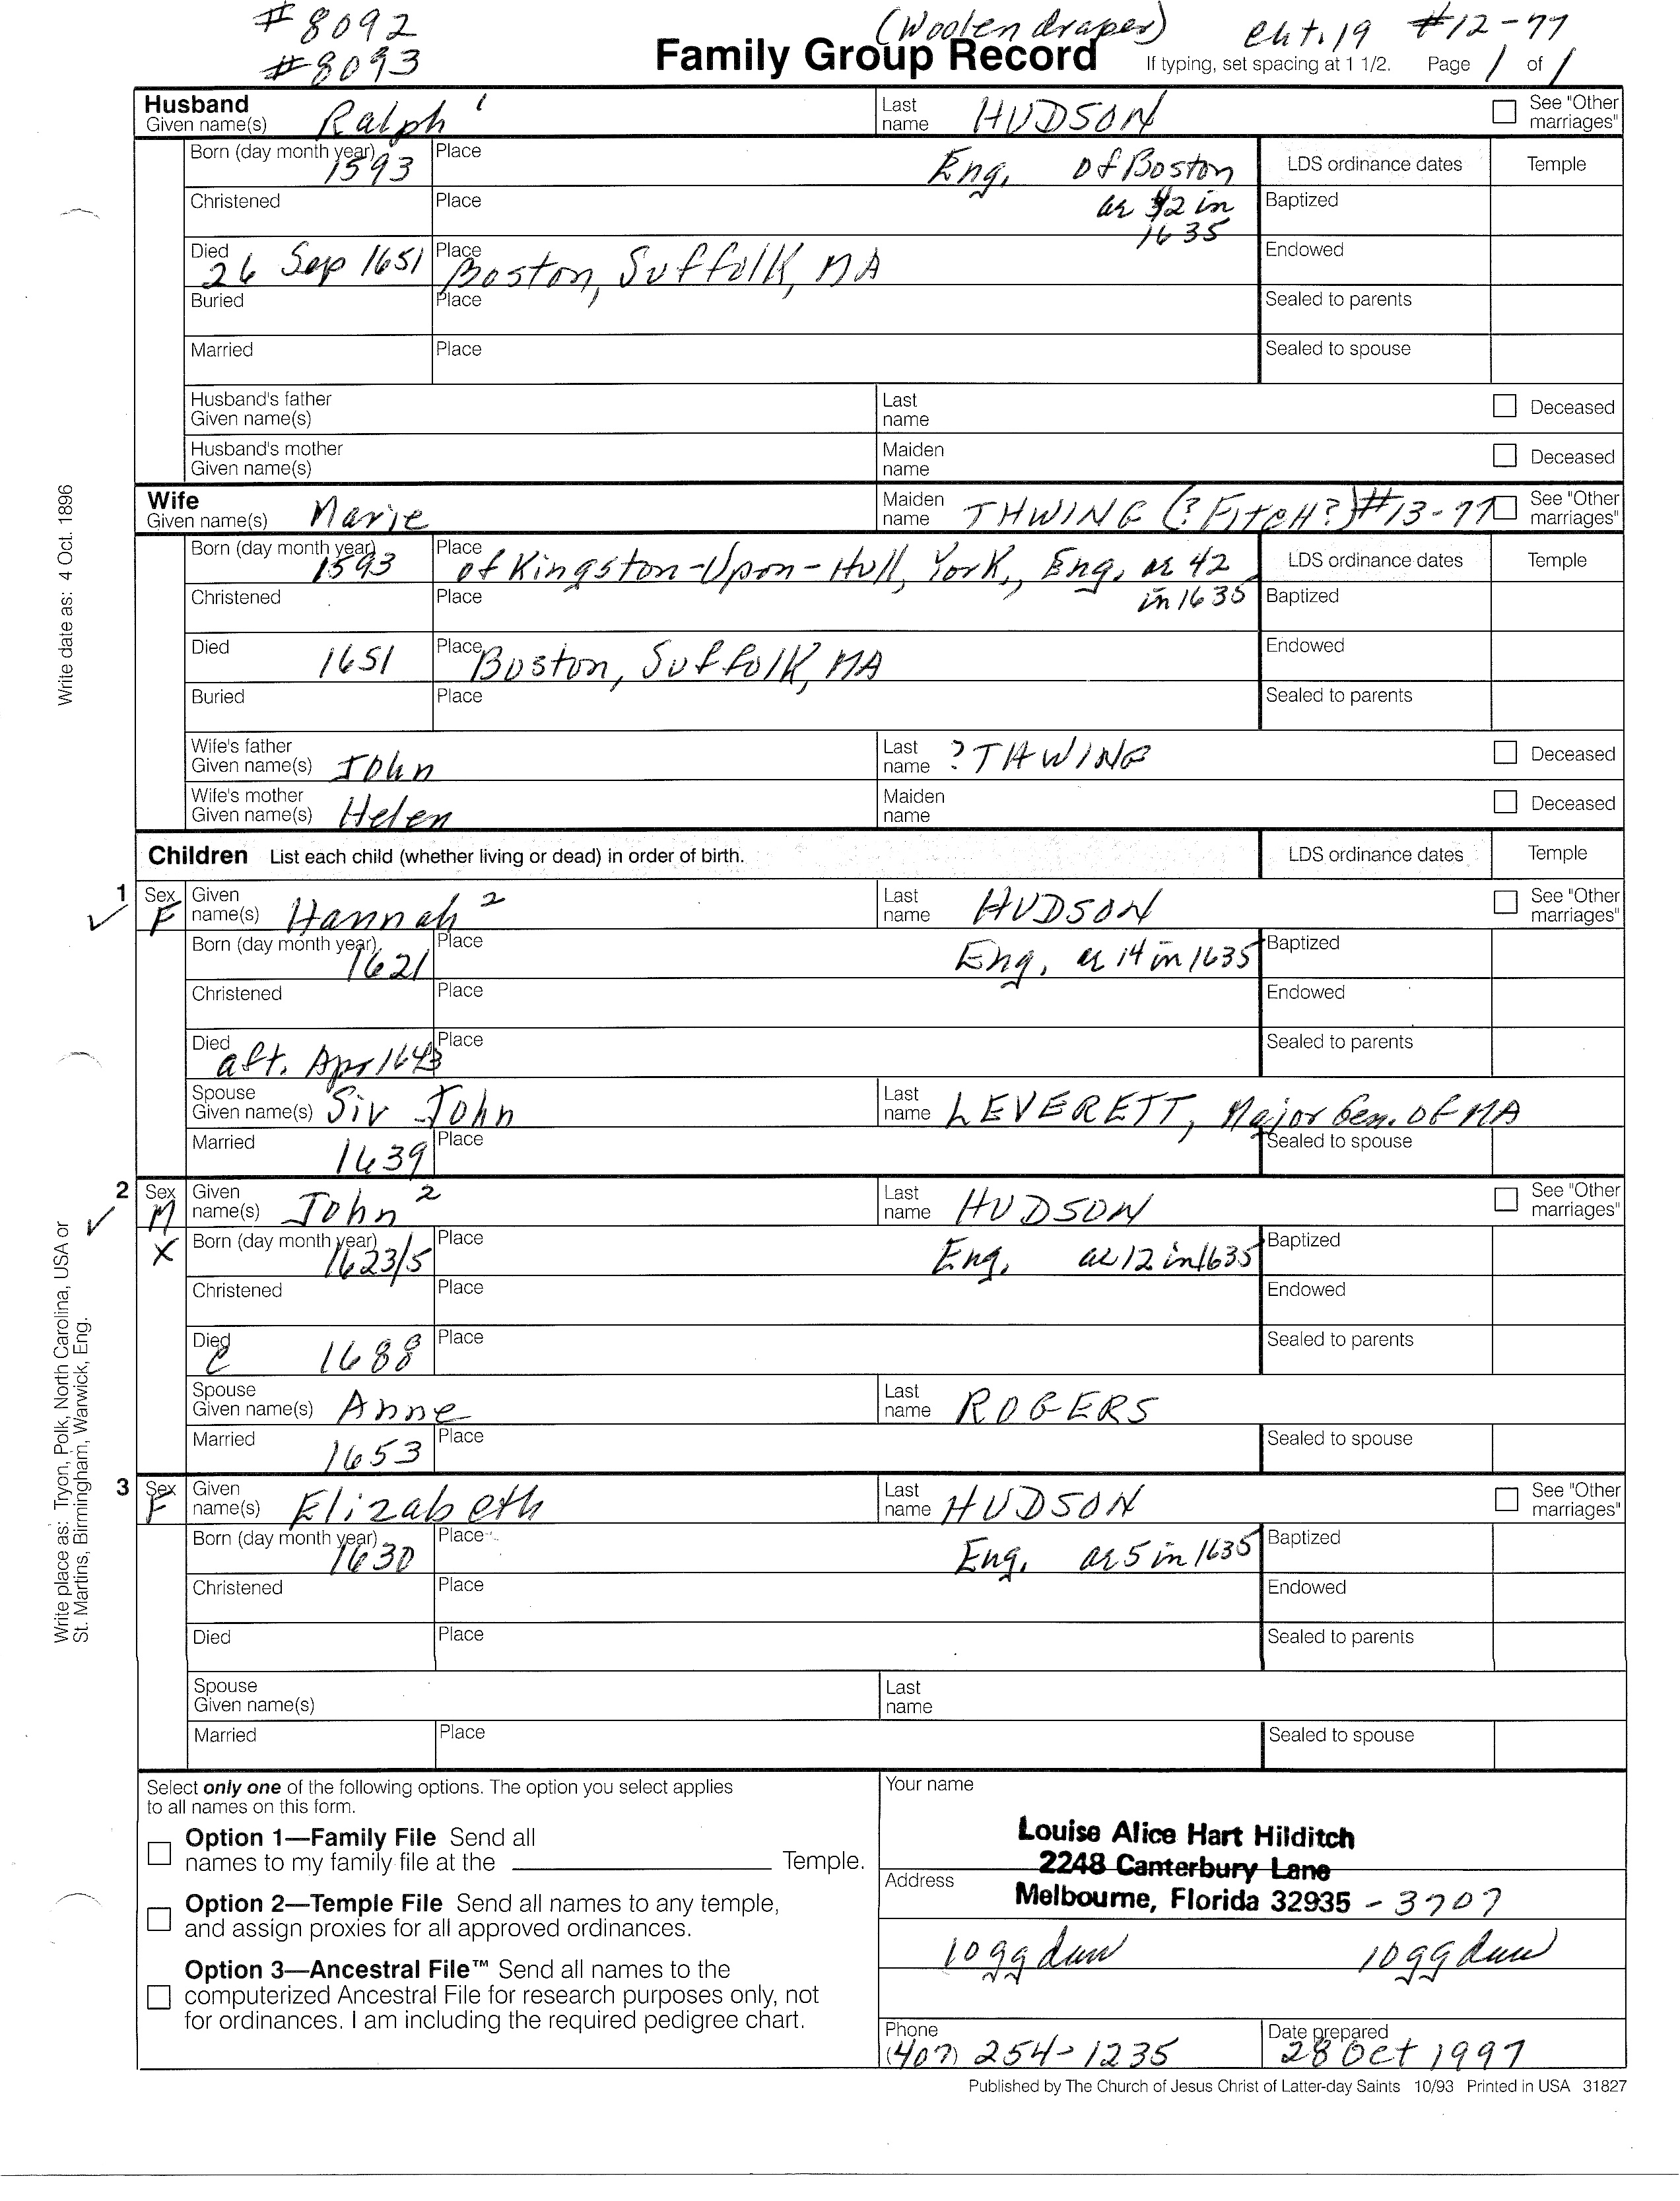 #8092 (Woolen draper) Cht. 19 #12-77
#8093 Family Group Record If typing, set spacing at 1 1/2. Page 1 of 1
Husband Given name(s) Ralph 1 Last name HUDSON See "Other marriages"
Born (day month year) 1593 Place Eng. of Boston LDS ordinance dates Temple
Christened Place ae 42 in 1635 Baptized
Died 26 Sep 1651 Place Boston, Suffolk, MA Endowed
Buried Place Sealed to parents
Married Place Sealed to spouse
Husband's father Given name(s) Last name Deceased
Husband's mother Given name(s) Maiden name Deceased
Wife Given name(s) Marie Maiden name THWING (?FITCH?) #13-77 See "Other marriages"
Born (day month year) 1593 Place of Kingston-Upon-Hull, York,, Eng. ae 42 in 1635 LDS ordinance dates Temple
Christened Place Baptized
Died 1651 Place Boston, Suffolk, MA Endowed
Buried Place Sealed to parents
Wife's father Given name(s) John Last name ?THWING Deceased
Wife's mother Given name(s) Helen Maiden name Deceased
Children List each child (whether living or dead) in order of birth. LDS ordinance dates Temple
1 Sex F Given name(s) Hannah 2 Last name HUDSON See "Other marriages"
Born (day month year) 1621 Place Eng. ae 14 in 1635 Baptized
Christened Place Endowed
Died aft. Apr 1643 Place Sealed to parents
Spouse Given name(s) Sir John Last name LEVERETT, Major Gen. of MA
Married 1639 Place Sealed to spouse
2 Sex M Given name(s) John 2 Last name HUDSON See "Other marriages"
X Born (day month year) 1623/5 Place Eng. ae 12 in 1635 Baptized
Christened Place Endowed
Died c 1688 Place Sealed to parents
Spouse Given name(s) Anne Last name ROGERS
Married 1653 Place Sealed to spouse
3 Sex F Given name(s) Elizabeth Last name HUDSON See "Other marriages"
Born (day month year) 1630 Place Eng. ae 5 in 1635 Baptized
Christened Place Endowed
Died Place Sealed to parents
Spouse Given name(s) Last name
Married Place Sealed to spouse
Select only one of the following options. The option you select applies
to all names on this form.
Option 1—Family File Send all
names to my family file at the Temple.
Option 2—Temple File Send all names to any temple,
and assign proxies for all approved ordinances.
Option 3—Ancestral File™ Send all names to the
computerized Ancestral File for research purposes only, not
for ordinances. I am including the required pedigree chart.
Your name
Louise Alice Hart Hilditch
2248 Canterbury Lane
Address
Melbourne, Florida 32935 - 3707
10 gg dau 10 gg dau
Phone (407) 254-1235 Date prepared 28 Oct 1997
Published by The Church of Jesus Christ of Latter-day Saints 10/93 Printed in USA 31827
Write date as: 4 Oct. 1896
Write place as: Tryon, Polk, North Carolina, USA or
St. Martins, Birmingham, Warwick, Eng.